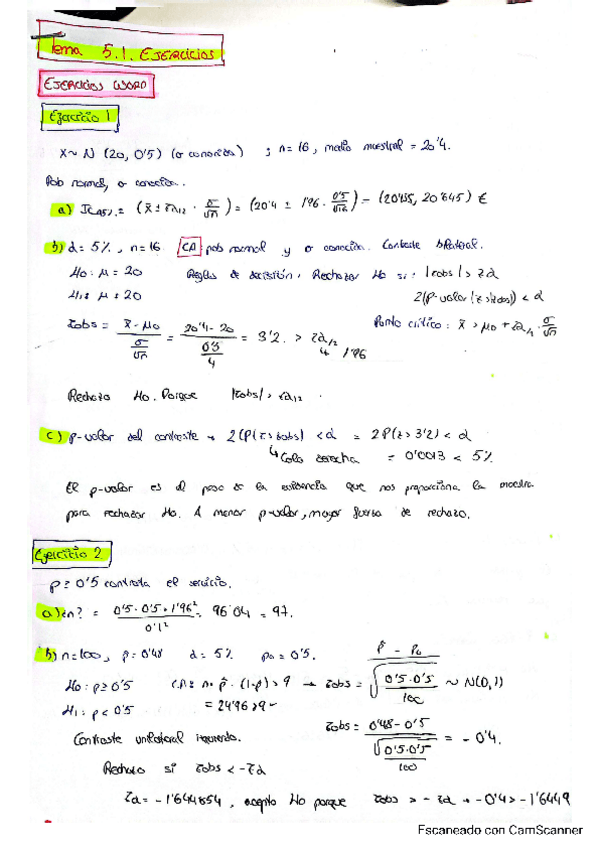 Tema 5.1. EJERCICIOS
EJERCICIOS WORD
Ejercicio 1
X~ N (20, 0'5) (σ conocida) ; n=16, media muestral = 20'4.
Pob normal, σ conocida.
a) IC₉₅% = (x̄ ± zα/2 · σ/√n) = (20'4 ± 1'96 · 0'5/√16) = (20'155, 20'645) €
b) α=5%, n=16. CA pob normal y σ conocida. Contraste bilateral.
H₀: μ = 20 Reglas de decisión: Rechazar H₀ si: |zobs| > zα
H₁: μ ≠ 20 2(P-valor(z>zobs)) < α
zobs = x̄ - μ₀ / σ/√n = 20'4 - 20 / 0'5/4 = 3'2. > zα/2 Punto crítico: x̄ > μ₀ + zα/2 · σ/√n
↳ 1'96
Rechazo H₀. Porque |zobs| > zα/2.
c) p-valor del contraste → 2(P(z>zobs) < α = 2P(z>3'2) < α
↳ Cola derecha = 0'0013 < 5%
El p-valor es el peso de la evidencia que nos proporciona la muestra
para rechazar H₀. A menor p-valor, mayor fuerza de rechazo.
Ejercicio 2
p ≥ 0'5 contrata el servicio.
a) ¿n? = 0'5 · 0'5 · 1'96² / 0'1² = 96'04 = 97.
b) n=100, p̂=0'48 α=5% p₀=0'5.
H₀: p≥0'5 CA = n · p̂ · (1-p̂) > 9 → zobs = p̂ - p₀ / √0'5·0'5/100 ~ N(0,1)
H₁: p < 0'5 = 24'96>9
Contraste unilateral izquierdo. zobs = 0'48 - 0'5 / √0'5·0'5/100 = -0'4.
Rechazo si zobs < -zα
zα = -1'644854, acepto H₀ porque zobs > -zα → -0'4 > -1'6449
Escaneado con CamScanner